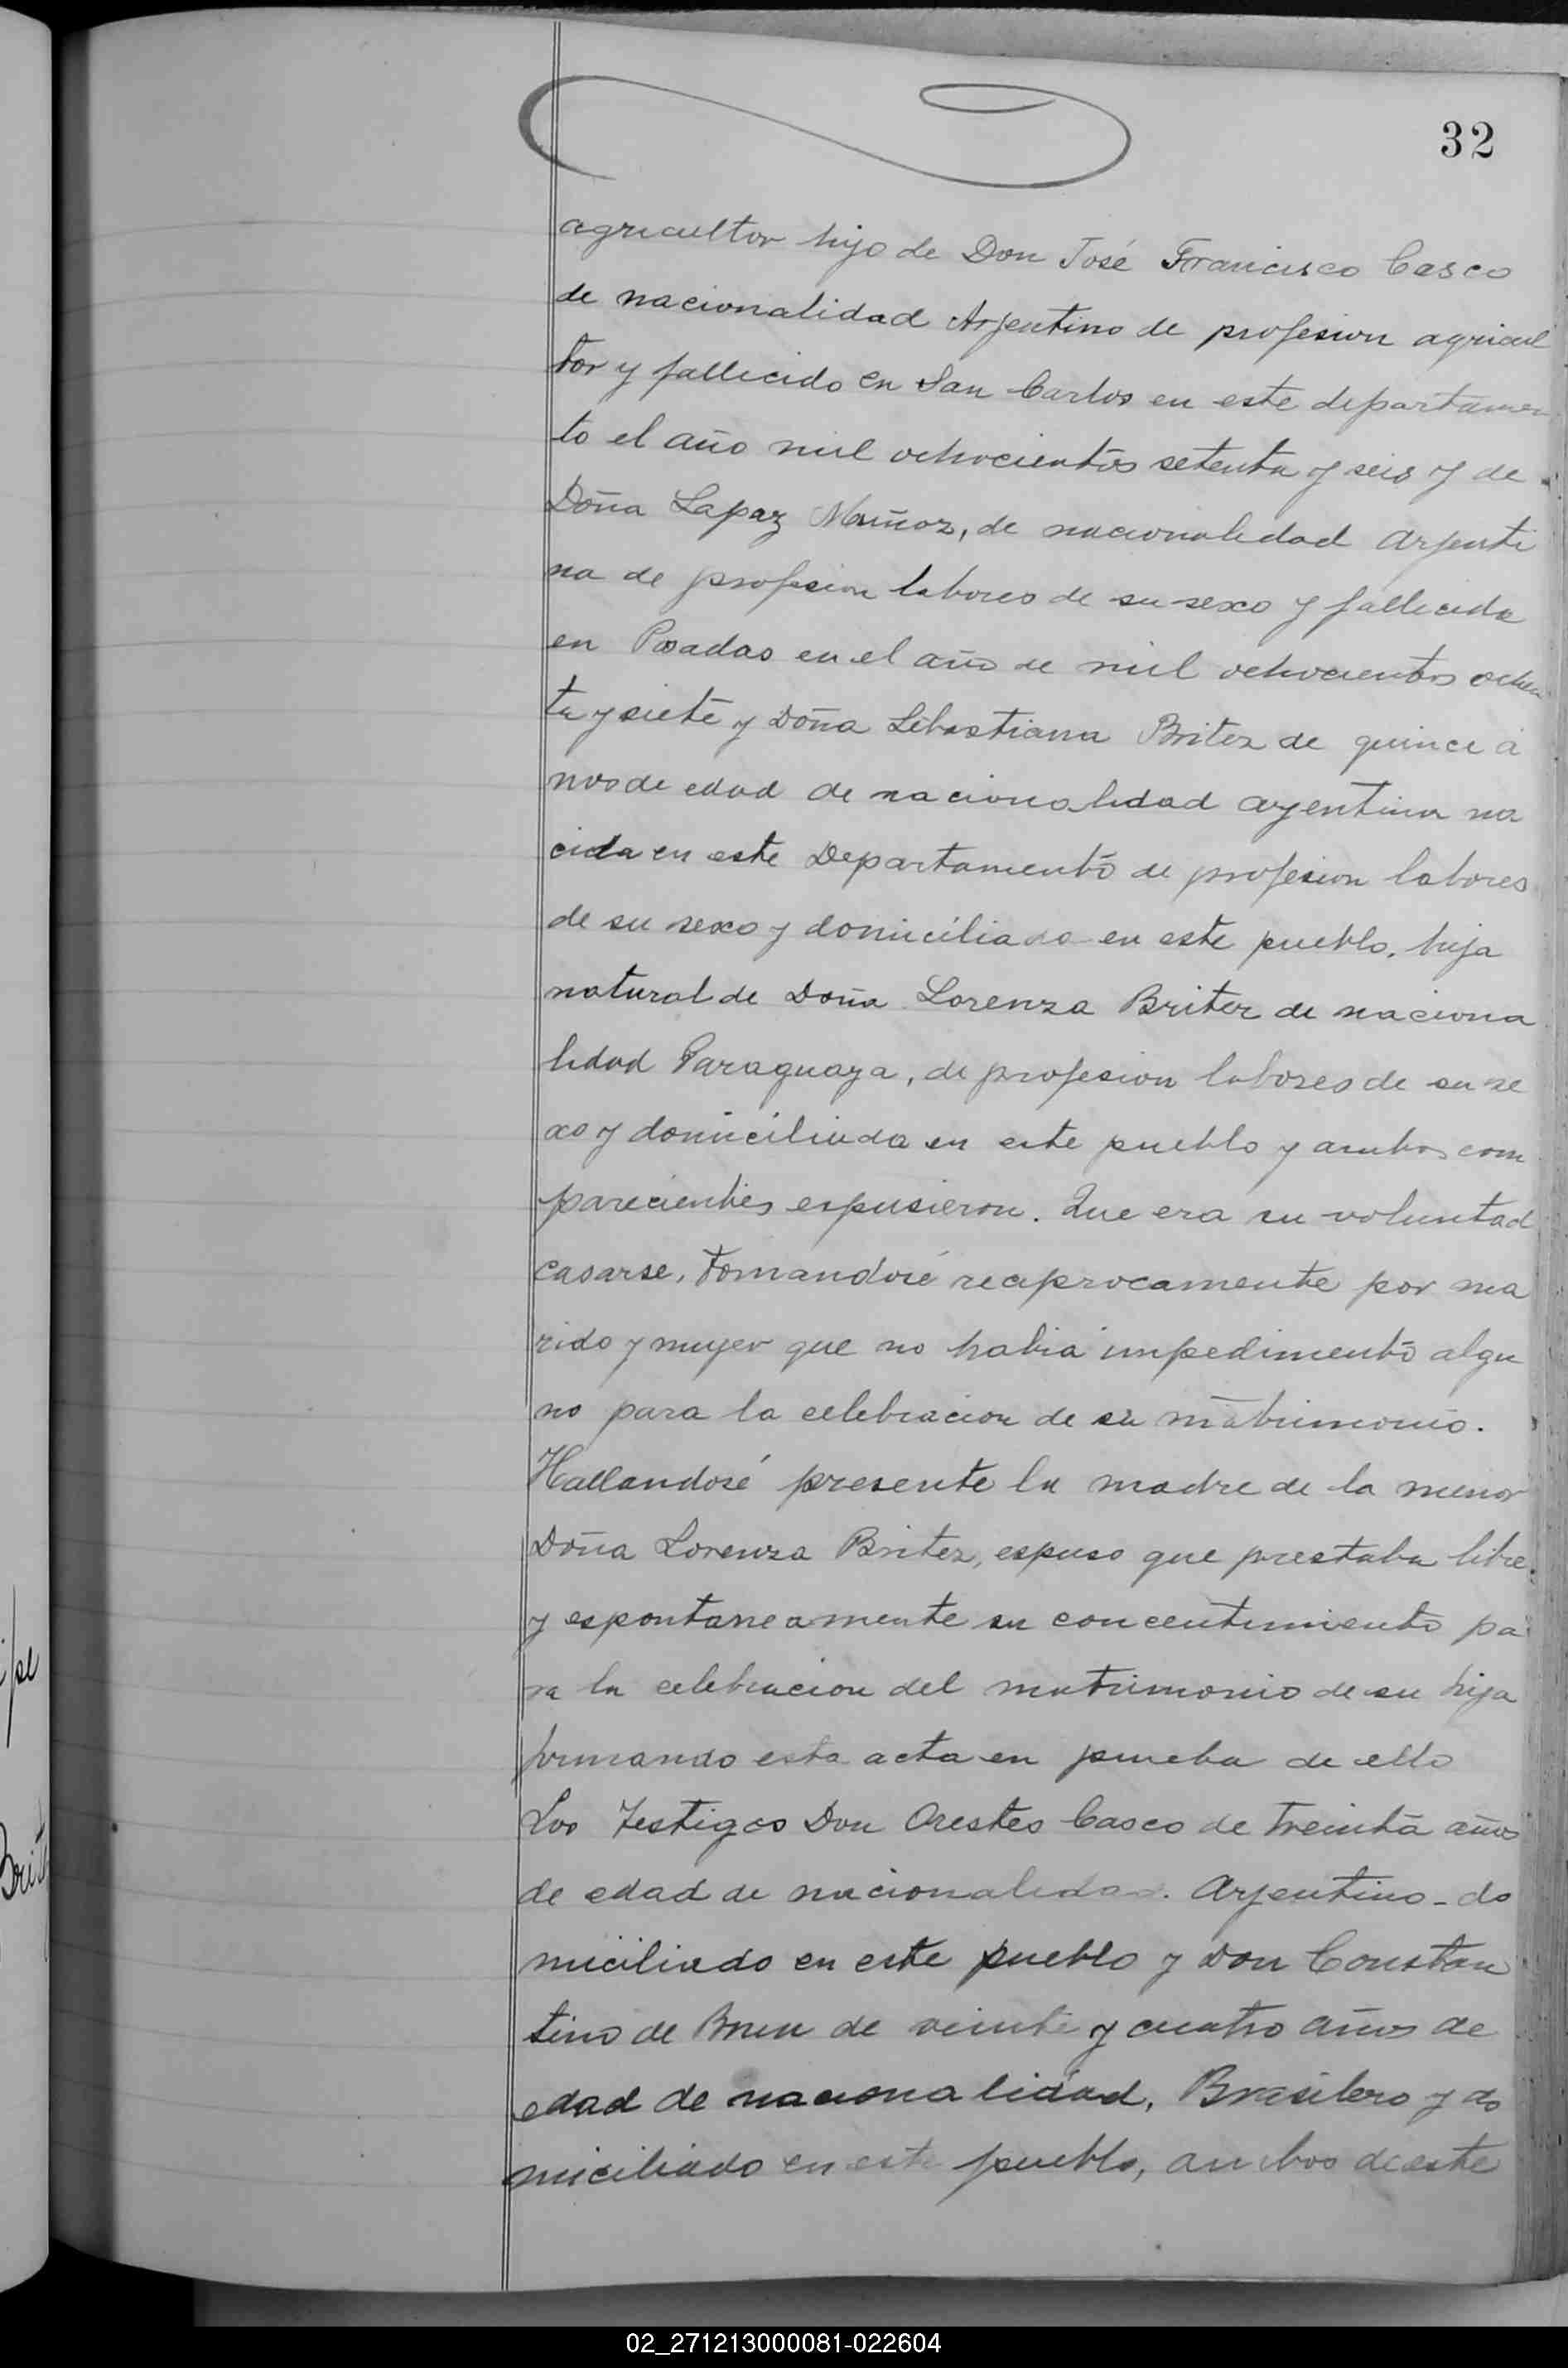 32
agricultor hijo de Don José Francisco Casco
de nacionalidad Arjentino de profesion agricul
tor y fallecido en San Carlos en este departamen
to el año mil ochocientos setenta y seis y de
Doña Lapaz Muñoz, de nacionalidad arjenti
na de profesion labores de su sexo y fallecida
en Posadas en el año de mil ochocientos ochen
ta y siete y Doña Sebastiana Britez de quince a
nos de edad de nacionalidad argentina na
cida en este Departamento de profesion labores
de su sexo y domiciliada en este pueblo, hija
natural de Doña Lorenza Britez de naciona
lidad Paraguaya, de profesion labores de su se
xo y domiciliada en este pueblo y ambos com
parecientes espusieron. Que era su voluntad
casarse, tomandosé reciprocamente por ma
rido y mujer que no habia impedimento algu
no para la celebracion de su matrimonio.
Hallandosé presente la madre de la menor
Doña Lorenza Britez, espuso que prestaba libre
y espontaneamente su concentimiento pa
ra la celebracion del matrimonio de su hija
firmando esta acta en prueba de ello
Los Testigos Don Orestes Casco de treinta años
de edad de nacionalidad. Arjentino - do
miciliado en este pueblo y Don Constan
tino de de veinte y cuatro años de
edad de nacionalidad, Brasilero y do
miciliado en este pueblo, ambos de este
02_271213000081-022604